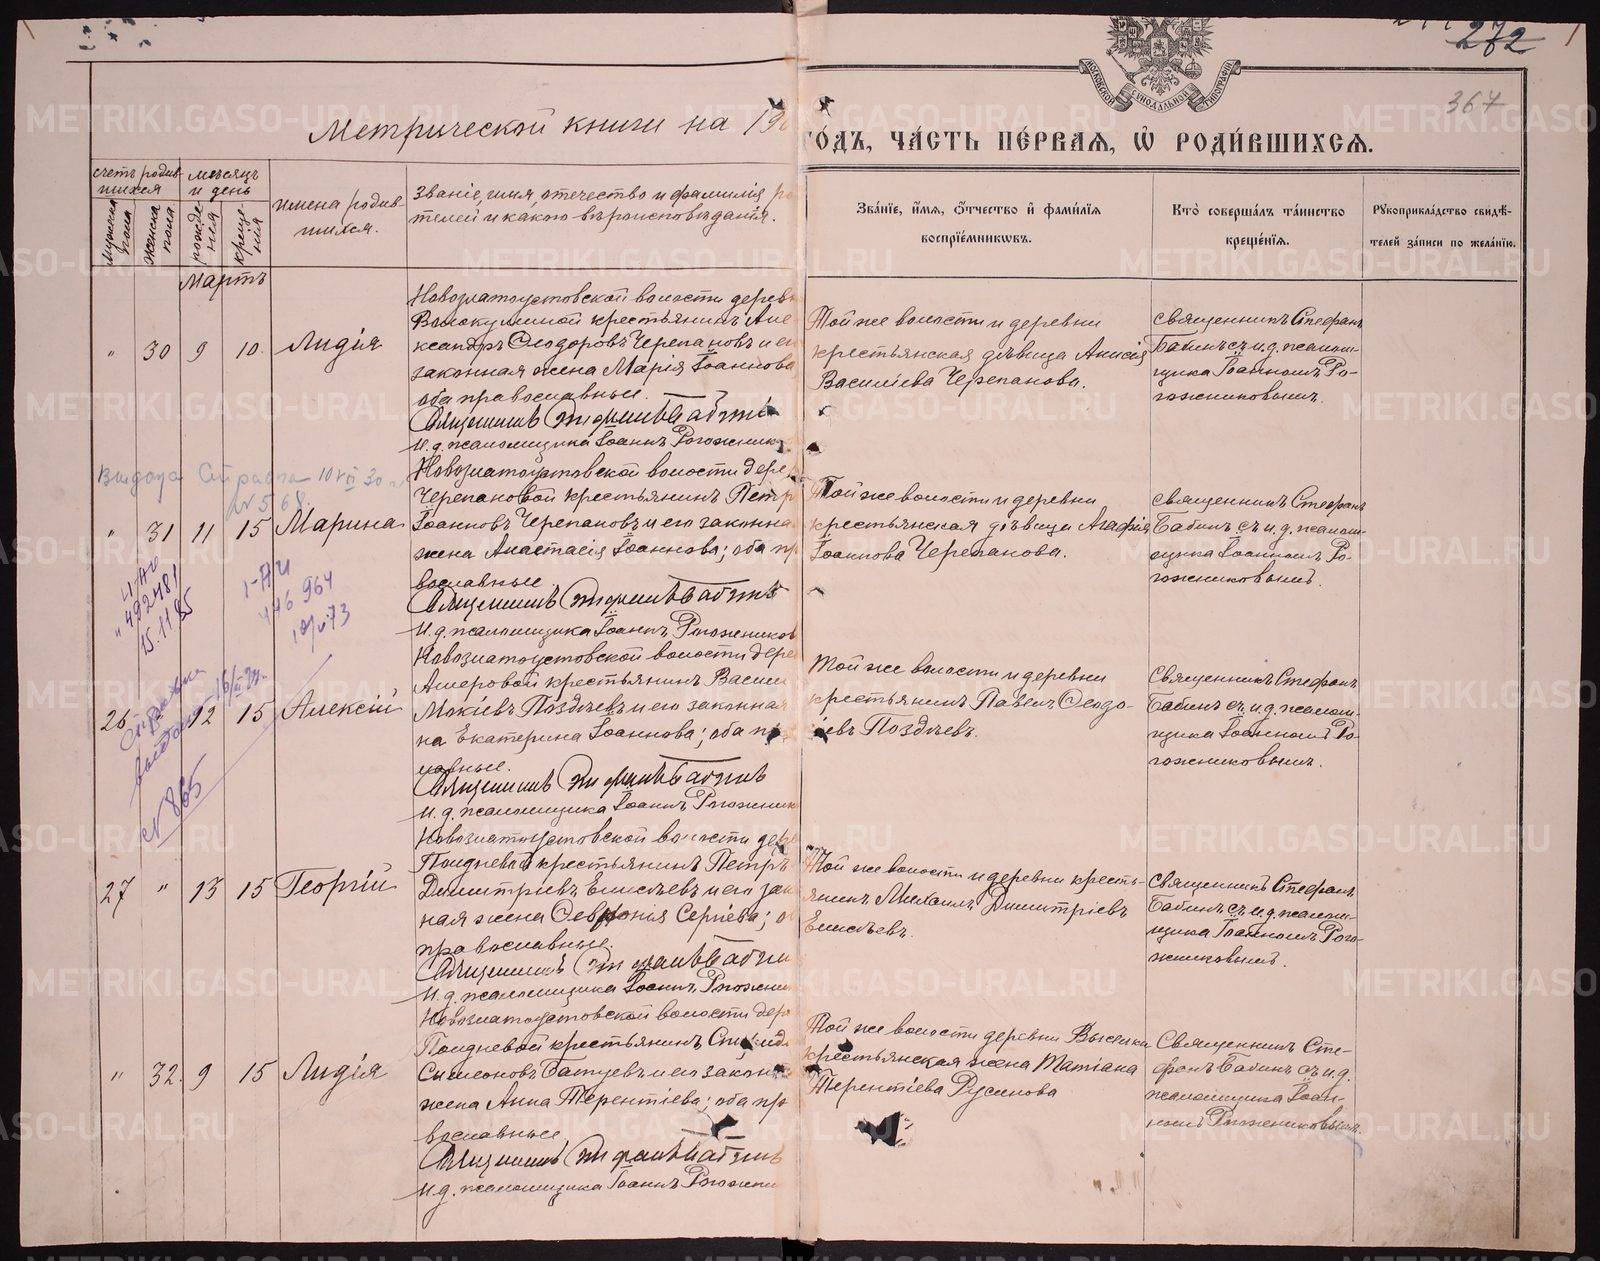 272
367
МОСКОВСКОЙ СѴНОДАЛЬНОЙ ТИПОГРАФІИ
Метрической книги на 19
ГО́ДЪ, ЧА́СТЬ ПЕ́РВАѦ, Ѡ҆ РОДИ́ВШИХСѦ.
счетъ родив-
шихся
мужска
пола
женска
пола
мѣсяцъ
и день
рожде-
нія
креще-
нія
имена родив-
шихся.
званіе, имя, отечество и фамилія ро
телей и какого вѣроисповѣданія.
Зва́нїе, и҆́мѧ, ѻ҆́тчество и҆ фами́лїѧ
воспрїе́мникѡвъ.
Кто̀ соверша́лъ та́инство
креще́нїѧ.
Рꙋкоприкла́дство свидѣ́-
телей за́писи по жела́нїю.
Мартъ
" 30 9 10 Лидія
Новозлатоустовской волости дерев
крестьянинъ Але
ксандръ Ѳеодоровъ Черепановъ и ег
законная жена Марія Іоаннова
оба православные.
Священникъ Стефанъ Бабинъ
И. д. псаломщика Іоаннъ Рогожник
Той же волости и деревни
крестьянская дѣвица Анисія
Василіева Черепанова.
Священникъ Стефанъ
Бабинъ съ и. д. псалом-
щика Іоанномъ Ро-
гожниковымъ.
Выдана Справка 10 VII 30 г.
№ 568.
" 31 11 15 Марина
Новозлатоустовской волости дере
Черепановой крестьянинъ Петр
Іоанновъ Черепановъ и его законна
жена Анастасія Іоаннова; оба пр
вославные
Священникъ Стефанъ Бабинъ
И. д. псаломщика Іоаннъ Рогожников
Той же волости и деревни
крестьянская дѣвица Агафія
Іоаннова Черепанова.
священникъ Стефанъ
Бабинъ съ и. д. псалом-
щика Іоанномъ Ро-
гожниковымъ.
492481
15.11.85
1-АИ
446 964
73
26 " 12 15 Алексій
Новозлатоустовской волости дере
Амеровой крестьянинъ Васил
Мокіевъ Поздѣевъ и его законная
на Екатерина Іоаннова; оба пр
славные.
Священникъ Стефанъ Бабинъ
И. д. псаломщика Іоаннъ Рогожник
Той же волости и деревни
крестьянинъ Павелъ Ѳеодо-
ріевъ Поздѣевъ.
Священникъ Стефанъ
Бабинъ съ и. д. псалом-
щика Іоанномъ Ро-
гожниковымъ.
Справка
выдана 16/II
№ 865
27 " 13 15 Георгій
Новозлатоустовской волости дере
Полдневой крестьянинъ Петръ
Димитріевъ Елисѣевъ и его зак
ная жена Ѳевронія Сергіева; об
православные.
Священникъ Стефанъ Бабин
И. д. псаломщика Іоаннъ Рогожни
Той же волости и деревни кресть-
янинъ Михаилъ Димитріевъ
Елисѣевъ.
Священникъ Стефанъ
Бабинъ съ и. д. псалом-
щика Іоанномъ Рого-
жниковымъ.
" 32. 9 15 Лидія
Новозлатоустовской волости дере
Полдневой крестьянинъ Спирид
Симеоновъ Батуевъ и его законн
жена Анна Терентіева; оба пра
вославные
Священникъ Стефанъ Бабинъ
И. д. псаломщика Іоаннъ Рогожни
Той же волости деревни Выселки
крестьянская жена Татіана
Терентіева Русинова
Священникъ Сте-
фанъ Бабинъ съ и. д.
псаломщика Іоан-
номъ Рогожниковымъ.